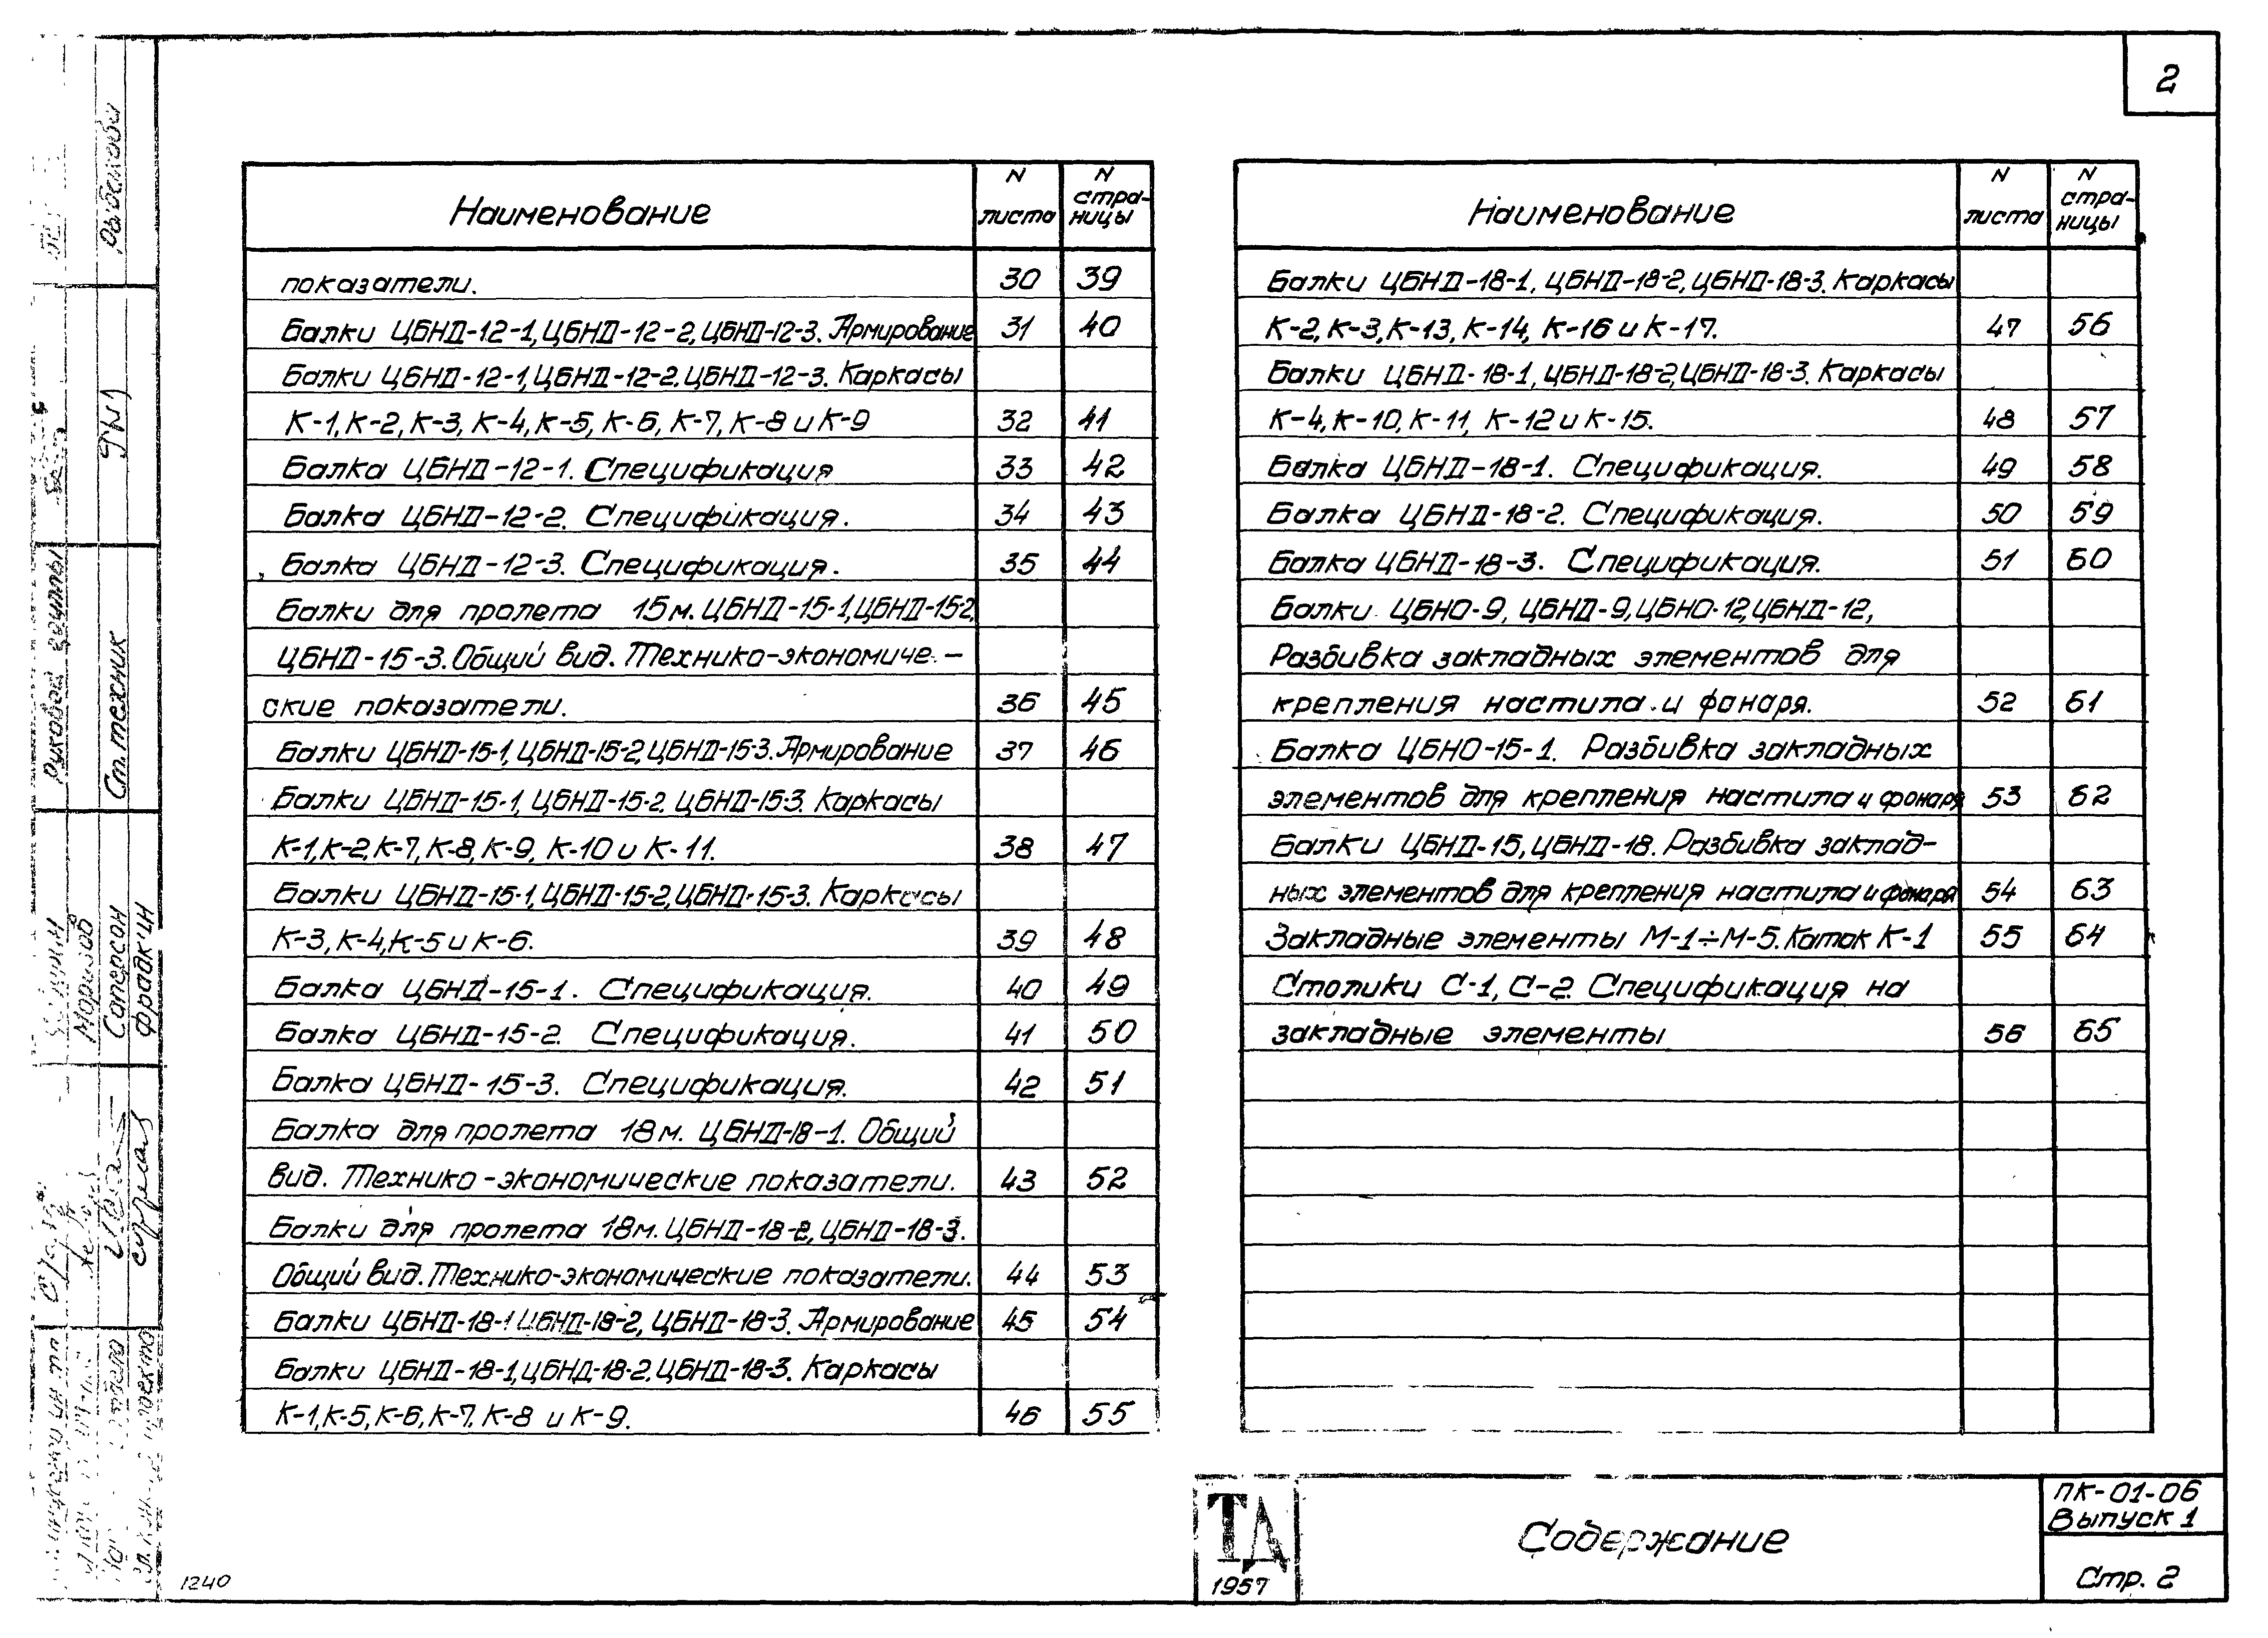 2
Наименование
N листа
N стра-
ницы
показатели. 30 39
Балки ЦБНД-12-1, ЦБНД-12-2, ЦБНД-12-3. Армирование 31 40
Балки ЦБНД-12-1, ЦБНД-12-2. ЦБНД-12-3. Каркасы
К-1, К-2, К-3, К-4, К-5, К-6, К-7, К-8 и К-9 32 41
Балка ЦБНД-12-1. Спецификация 33 42
Балка ЦБНД-12-2. Спецификация. 34 43
Балка ЦБНД-12-3. Спецификация. 35 44
Балки для пролета 15м. ЦБНД-15-1, ЦБНД-15-2,
ЦБНД-15-3. Общий вид. Технико-экономиче-
ские показатели. 36 45
Балки ЦБНД-15-1, ЦБНД-15-2, ЦБНД-15-3. Армирование 37 46
Балки ЦБНД-15-1, ЦБНД-15-2. ЦБНД-15-3. Каркасы
К-1, К-2, К-7, К-8, К-9, К-10 и К-11. 38 47
Балки ЦБНД-15-1, ЦБНД-15-2, ЦБНД-15-3. Каркасы
К-3, К-4, К-5 и К-6. 39 48
Балка ЦБНД-15-1. Спецификация. 40 49
Балка ЦБНД-15-2. Спецификация. 41 50
Балка ЦБНД-15-3. Спецификация. 42 51
Балка для пролета 18м. ЦБНД-18-1. Общий
вид. Технико-экономические показатели. 43 52
Балки для пролета 18м. ЦБНД-18-2, ЦБНД-18-3.
Общий вид. Технико-экономические показатели. 44 53
Балки ЦБНД-18-1 ЦБНД-18-2, ЦБНД-18-3. Армирование 45 54
Балки ЦБНД-18-1, ЦБНД-18-2. ЦБНД-18-3. Каркасы
К-1, К-5, К-6, К-7. К-8 и К-9. 46 55
Наименование
N листа
N стра-
ницы
Балки ЦБНД-18-1, ЦБНД-18-2, ЦБНД-18-3. Каркасы
К-2, К-3, К-13, К-14, К-16 и К-17. 47 56
Балки ЦБНД-18-1, ЦБНД-18-2, ЦБНД-18-3. Каркасы
К-4, К-10, К-11, К-12 и К-15. 48 57
Балка ЦБНД-18-1. Спецификация. 49 58
Балка ЦБНД-18-2. Спецификация. 50 59
Балка ЦБНД-18-3. Спецификация. 51 60
Балки ЦБНО-9, ЦБНД-9, ЦБНО-12, ЦБНД-12,
Разбивка закладных элементов для
крепления настила и фонаря. 52 61
Балка ЦБНО-15-1. Разбивка закладных
элементов для крепления настила и фонаря 53 62
Балки ЦБНД-15, ЦБНД-18. Разбивка заклад-
ных элементов для крепления настила и фонаря 54 63
Закладные элементы М-1÷М-5. Каток К-1 55 64
Столики С-1, С-2. Спецификация на
закладные элементы 56 65
Рыбакова
Руковод группы
Ст. техник
Морозов
Саперсон
Фрадкин
1240
ТД
1957
Содержание
ПК-01-06
Выпуск 1
Стр. 2